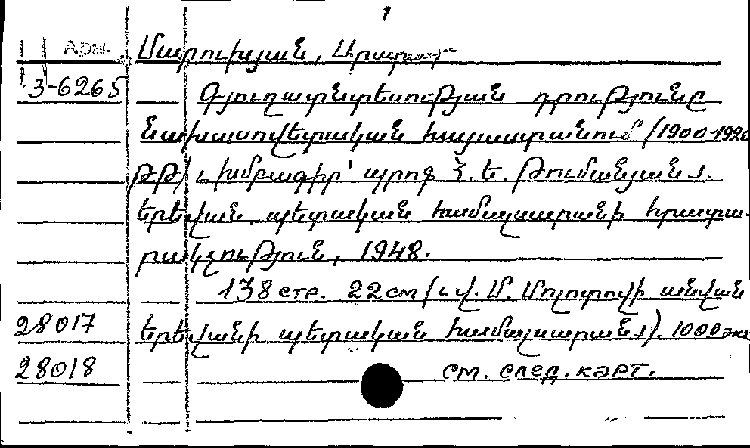 1
Арм. Մարուխյան, Արտաշես
3-6265 Գյուղատնտեսության դրությունը
նախասովետական հայաստանում (1900-1920
թթ) ։ Խմբագիր՝ պրոֆ Հ. Ե. Թումանյան ։.
Երեվան, պետական համալսարանի հրատա-
րակչություն, 1948.
138 стр. 22 см (ւ Վ. Մ. Մոլոտովի անվան
28017 Երեվանի պետական համալսարան ։). 1000 экз
28018 см. след. карт.